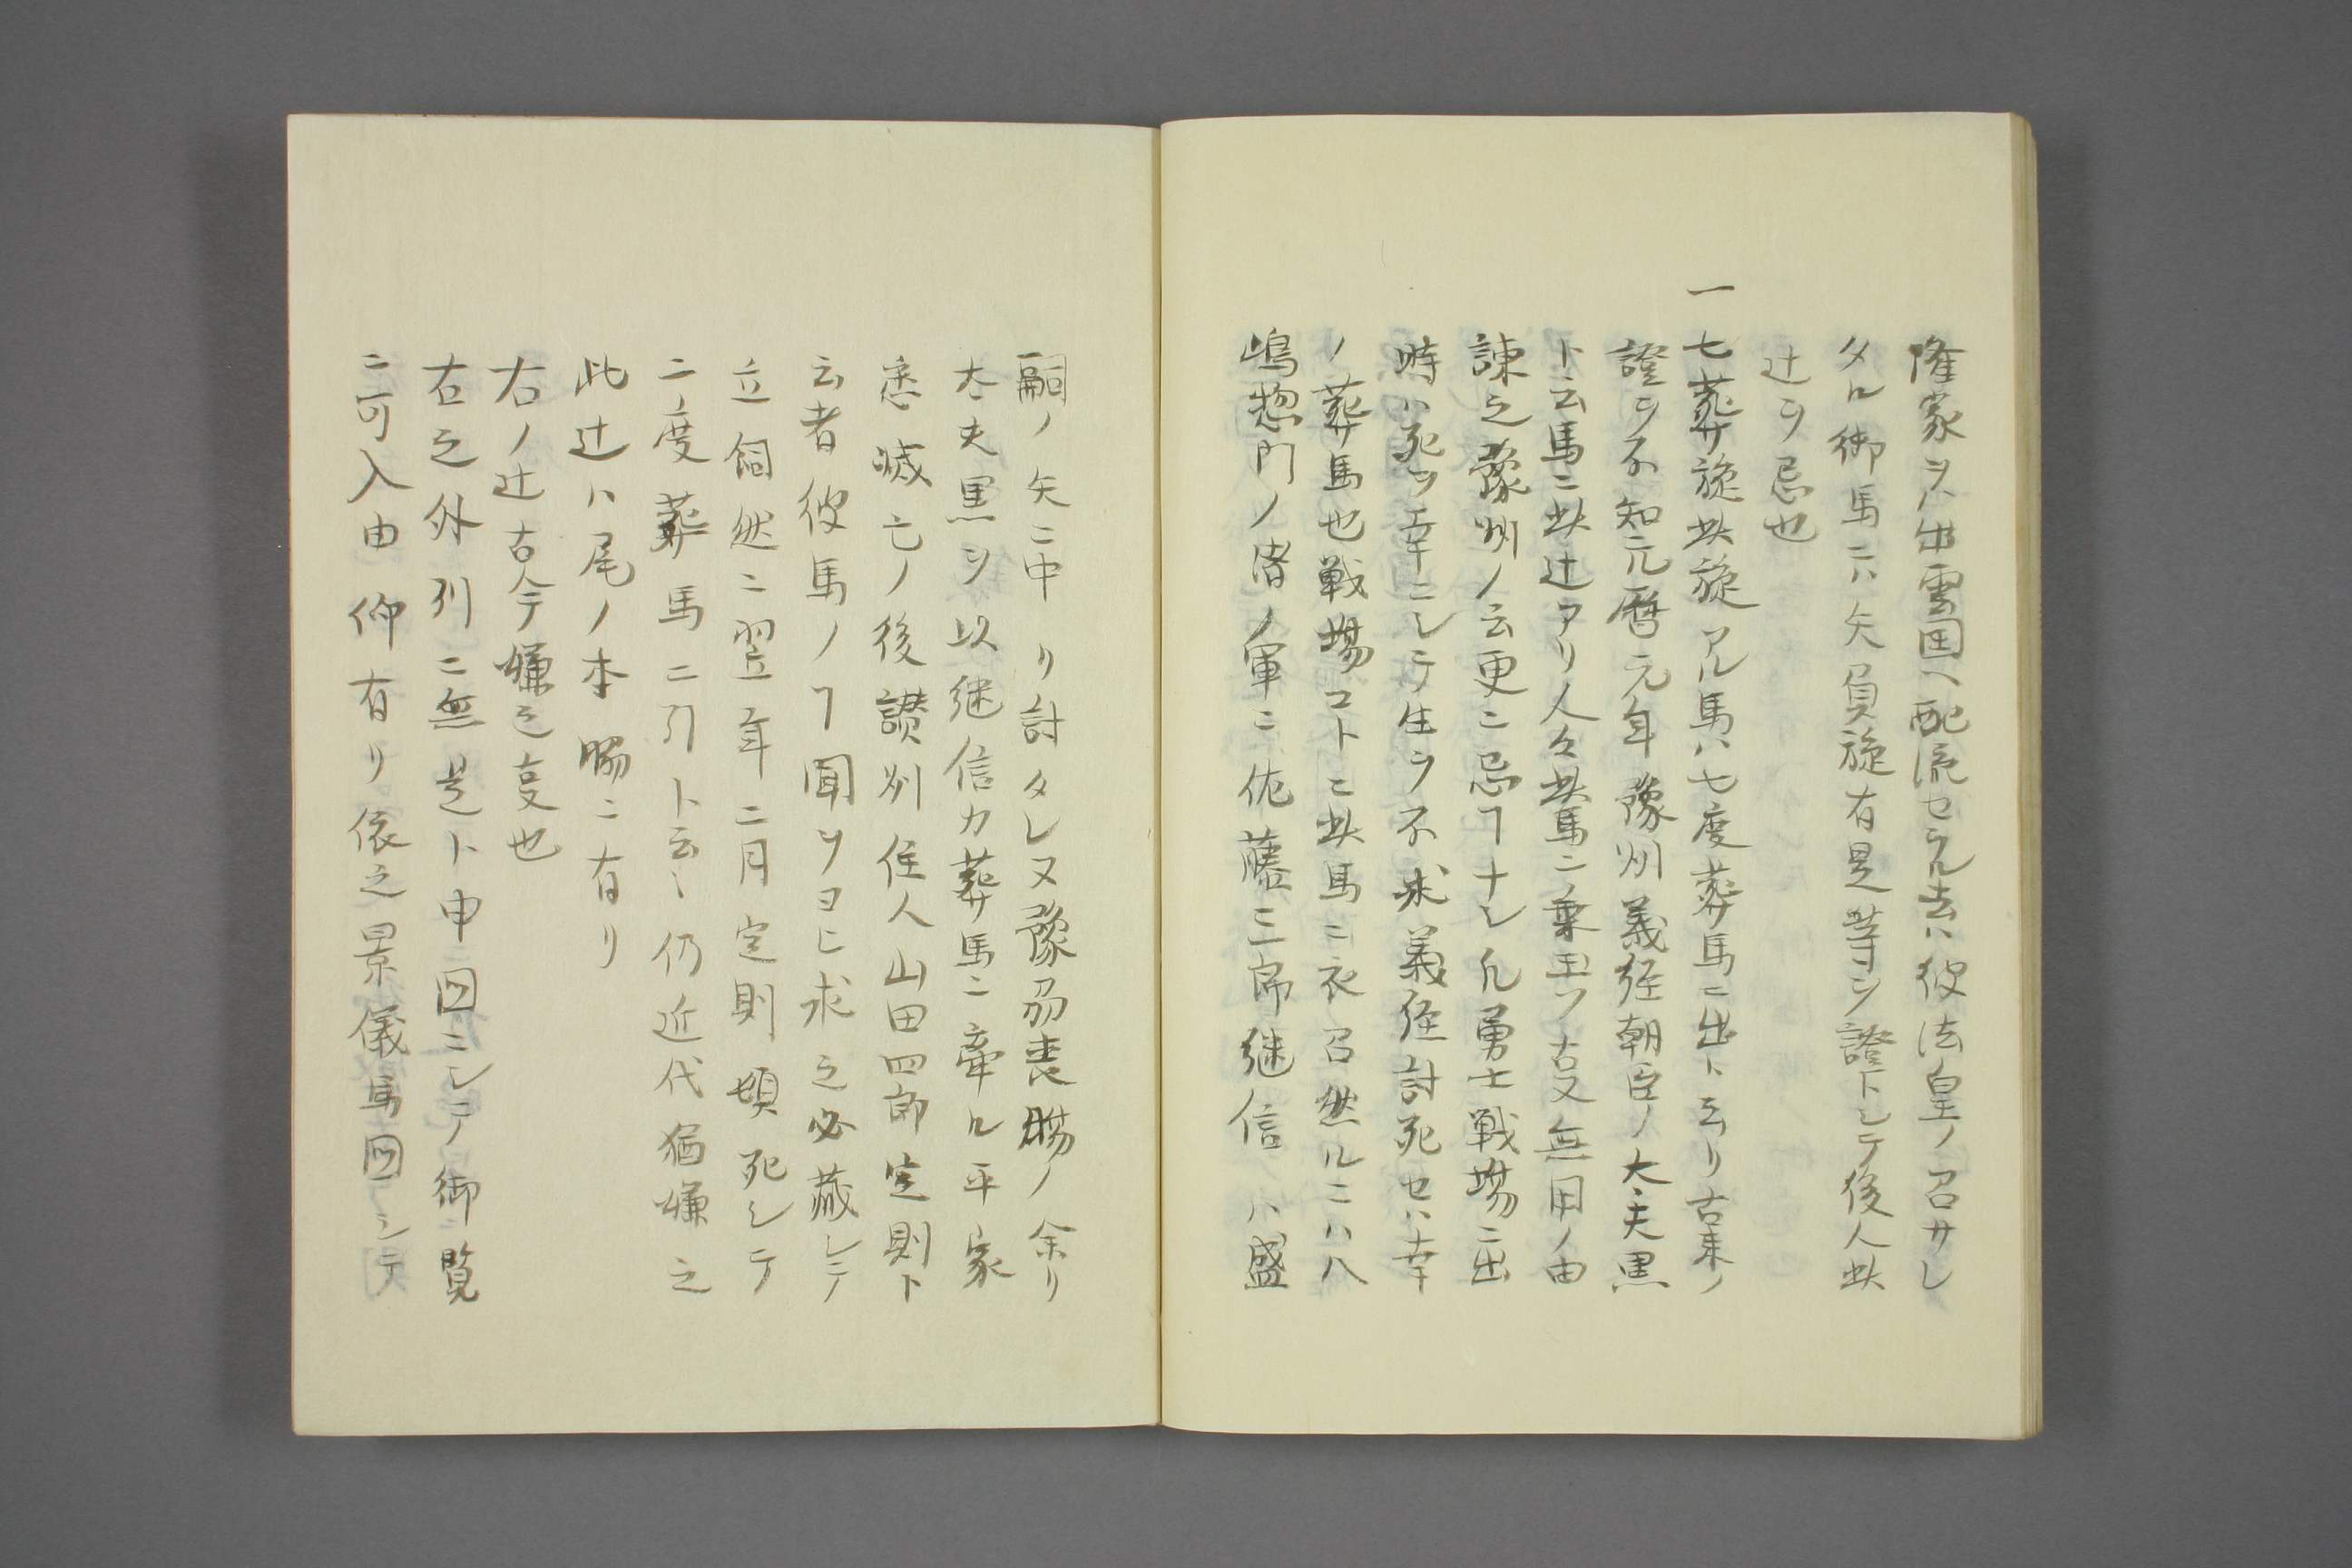 隆家ヲハ出雲国ヘ配流セラル去ハ彼法皇ノ召サレ
タル御馬ニハ矢負旋有是等ヲ證トシテ後人此
辻ヲ忌也
一 七葬旋此旋アル馬ハ七度葬馬ニ出ト云リ古来ノ
證ヲ不知元暦元年豫州義経朝臣ノ大夫黒
ト云馬ニ此辻アリ人々此馬ニ乗玉フ㕝無用ノ由
諌之豫州ノ云更ニ忌ヿナシ凡勇士戦場ニ出
時ハ死ヲ幸ニシテ生ヲ不求義経討死セハ幸
ノ葬馬也戦場コトニ此馬ニ衣召然ルニハ八
嶋惣門ノ渚ノ軍ニ佐藤三郎継信ハ盛
嗣ノ矢ニ中リ討タレヌ豫刕喪腸ノ余リ
大夫黒ヲ以継信カ葬馬ニ牽ル平家
悉滅亡ノ後讃州住人山田四郎定則ト
云者彼馬ノヿ聞ツヨヒ求之必蔵シテ
立飼然ニ翌年二月定則頓死シテ
二度葬馬ニ引ト云〻仍近代猶嫌之
此辻ハ尾ノ本腸ニ有リ
右ノ辻古今嫌之㕝也
右之外別ニ無是ト申図ニシテ御覧
ニ可入由仰有リ依之景儀馬図シテ